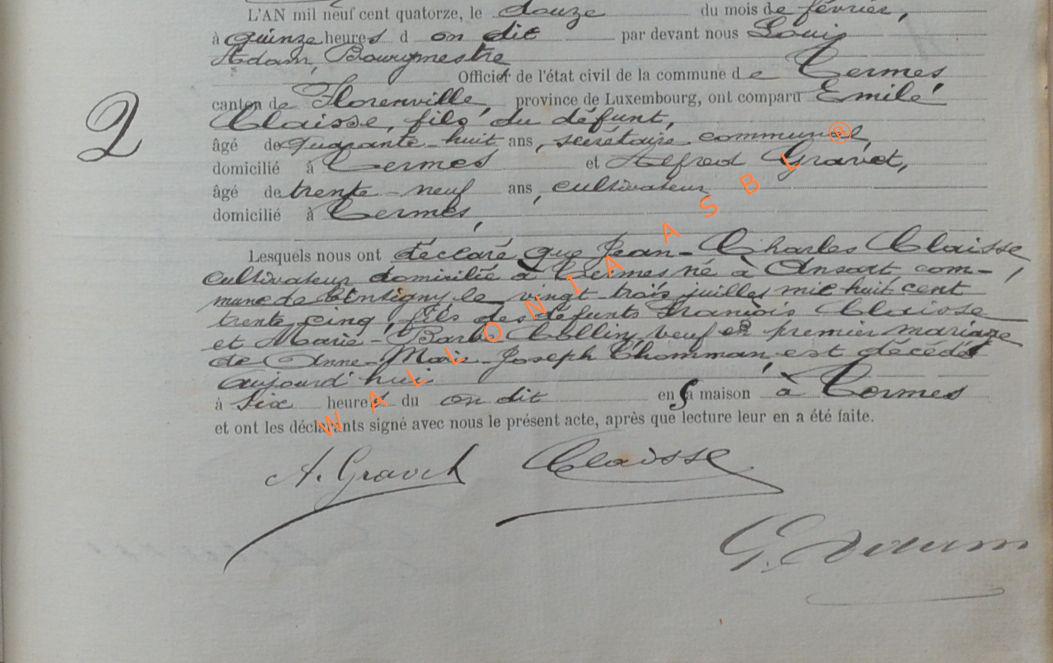 L'AN mil neuf cent quatorze, le douze du mois de février,
à quinze heures d on dit par devant nous Louis
Adam, Bourgmestre
Officier de l'état civil de la commune d e Termes
canton de Florenville, province de Luxembourg, ont comparu Emile
Claisse, fils du défunt,
âgé de quarante-huit ans, secrétaire communal,
domicilié à Termes et Alfred Gravet,
âgé de trente-neuf ans, cultivateur
domicilié à Termes,
Lesquels nous ont déclaré que Jean-Charles Claisse
cultivateur domicilié à Termes né à Ansart com-
mune de Tintigny le vingt-trois juillet mil huit cent
trente cinq, fils des défunts François Claisse
et Marie-Barbe Collin, veuf en premier mariage
de Anne-Marie-Joseph Thomman, est décédé
aujourd'hui
à six heures du on dit en sa maison à Termes
et ont les déclarants signé avec nous le présent acte, après que lecture leur en a été faite.
2
A. Gravet Claisse
WALLONIA ASBL ®